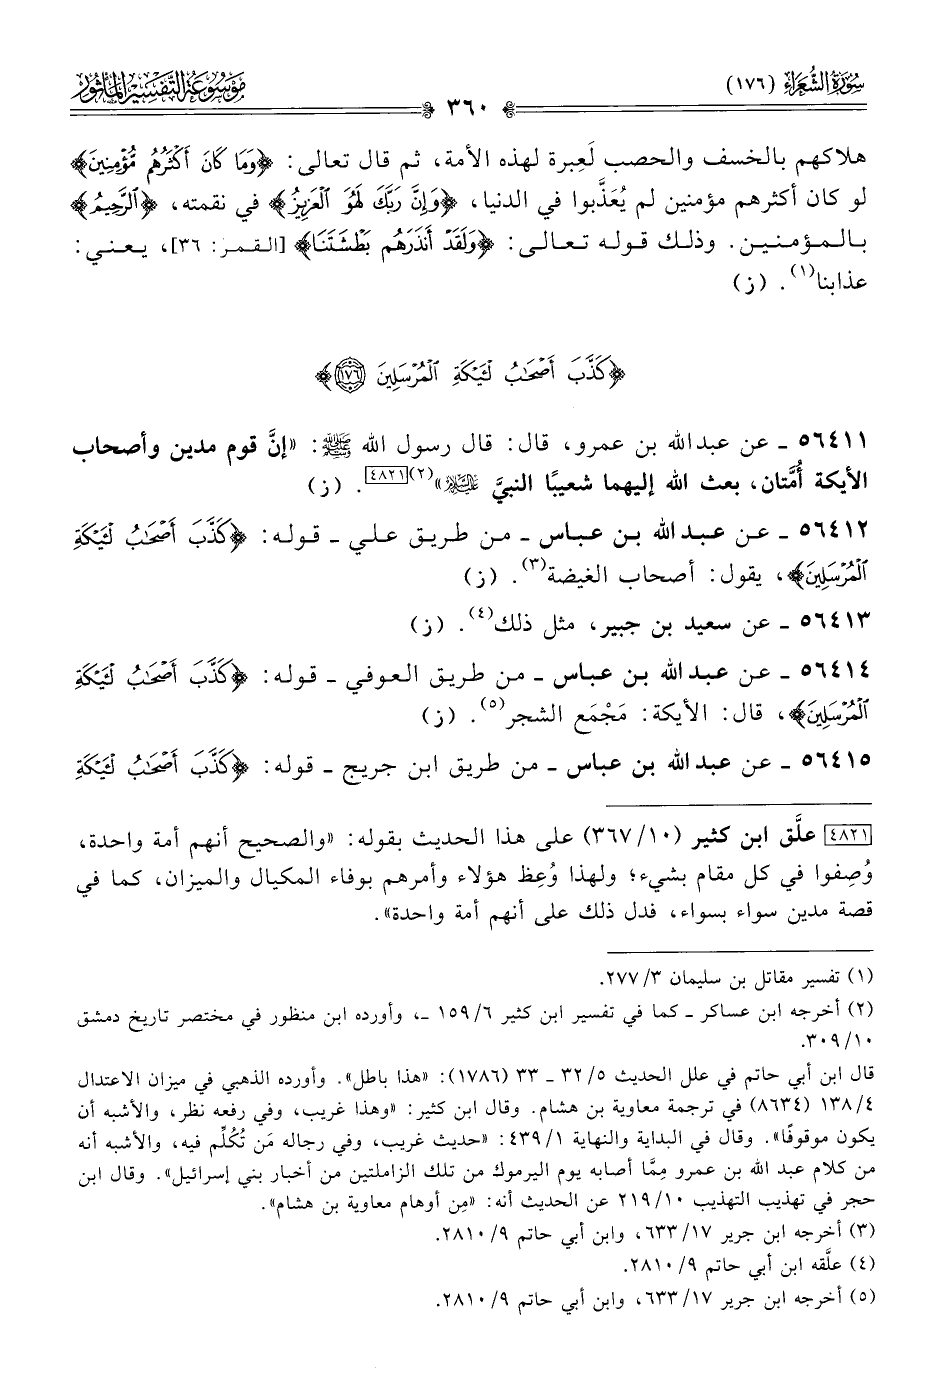 سُورَةُ الشُّعَرَاءِ (١٧٦)
٣٦٠
مَوْسُوعَةُ التَّفْسِيرِ المَأْثُور
هلاكهم بالخسف والحصب لَعِبرة لهذه الأمة، ثم قال تعالى: ﴿وَمَا كَانَ أَكْثَرُهُم مُّؤْمِنِينَ﴾
لو كان أكثرهم مؤمنين لم يُعَذَّبوا في الدنيا، ﴿وَإِنَّ رَبَّكَ لَهُوَ ٱلْعَزِيزُ﴾ في نقمته، ﴿ٱلرَّحِيمُ﴾
بالـمؤمنين. وذلك قوله تعالى: ﴿وَلَقَدْ أَنذَرَهُم بَطْشَتَنَا﴾ [القمر: ٣٦]، يعني:
عذابنا(١). (ز)
﴿كَذَّبَ أَصْحَٰبُ لْـَٔيْكَةِ ٱلْمُرْسَلِينَ ١٧٦﴾
٥٦٤١١ ـ عن عبدالله بن عمرو، قال: قال رسول الله ﷺ: «إنَّ قوم مدين وأصحاب
الأيكة أُمَّتان، بعث الله إليهما شعيبًا النبيَّ عليه السلام»(٢)[٤٨٢١]. (ز)
٥٦٤١٢ ـ عن عبدالله بن عباس ـ من طريق علي ـ قوله: ﴿كَذَّبَ أَصْحَٰبُ لْـَٔيْكَةِ
ٱلْمُرْسَلِينَ﴾، يقول: أصحاب الغيضة(٣). (ز)
٥٦٤١٣ ـ عن سعيد بن جبير، مثل ذلك(٤). (ز)
٥٦٤١٤ ـ عن عبدالله بن عباس ـ من طريق العوفي ـ قوله: ﴿كَذَّبَ أَصْحَٰبُ لْـَٔيْكَةِ
ٱلْمُرْسَلِينَ﴾، قال: الأيكة: مَجْمَع الشجر(٥). (ز)
٥٦٤١٥ ـ عن عبدالله بن عباس ـ من طريق ابن جريج ـ قوله: ﴿كَذَّبَ أَصْحَٰبُ لْـَٔيْكَةِ
[٤٨٢١] علَّق ابن كثير (١٠/٣٦٧) على هذا الحديث بقوله: «والصحيح أنهم أمة واحدة،
وُصِفوا في كل مقام بشيء؛ ولهذا وُعِظ هؤلاء وأمرهم بوفاء المكيال والميزان، كما في
قصة مدين سواء بسواء، فدل ذلك على أنهم أمة واحدة».
(١) تفسير مقاتل بن سليمان ٣/٢٧٧.
(٢) أخرجه ابن عساكر ـ كما في تفسير ابن كثير ٦/١٥٩ ـ، وأورده ابن منظور في مختصر تاريخ دمشق
١٠/٣٠٩.
قال ابن أبي حاتم في علل الحديث ٥/٣٢ ـ ٣٣ (١٧٨٦): «هذا باطل». وأورده الذهبي في ميزان الاعتدال
٤/١٣٨ (٨٦٣٤) في ترجمة معاوية بن هشام. وقال ابن كثير: «وهذا غريب، وفي رفعه نظر، والأشبه أن
يكون موقوفًا». وقال في البداية والنهاية ١/٤٣٩: «حديث غريب، وفي رجاله مَن تُكُلِّم فيه، والأشبه أنه
من كلام عبد الله بن عمرو مِمَّا أصابه يوم اليرموك من تلك الزاملتين من أخبار بني إسرائيل». وقال ابن
حجر في تهذيب التهذيب ١٠/٢١٩ عن الحديث أنه: «مِن أوهام معاوية بن هشام».
(٣) أخرجه ابن جرير ١٧/٦٣٣، وابن أبي حاتم ٩/٢٨١٠.
(٤) علَّقه ابن أبي حاتم ٩/٢٨١٠.
(٥) أخرجه ابن جرير ١٧/٦٣٣، وابن أبي حاتم ٩/٢٨١٠.